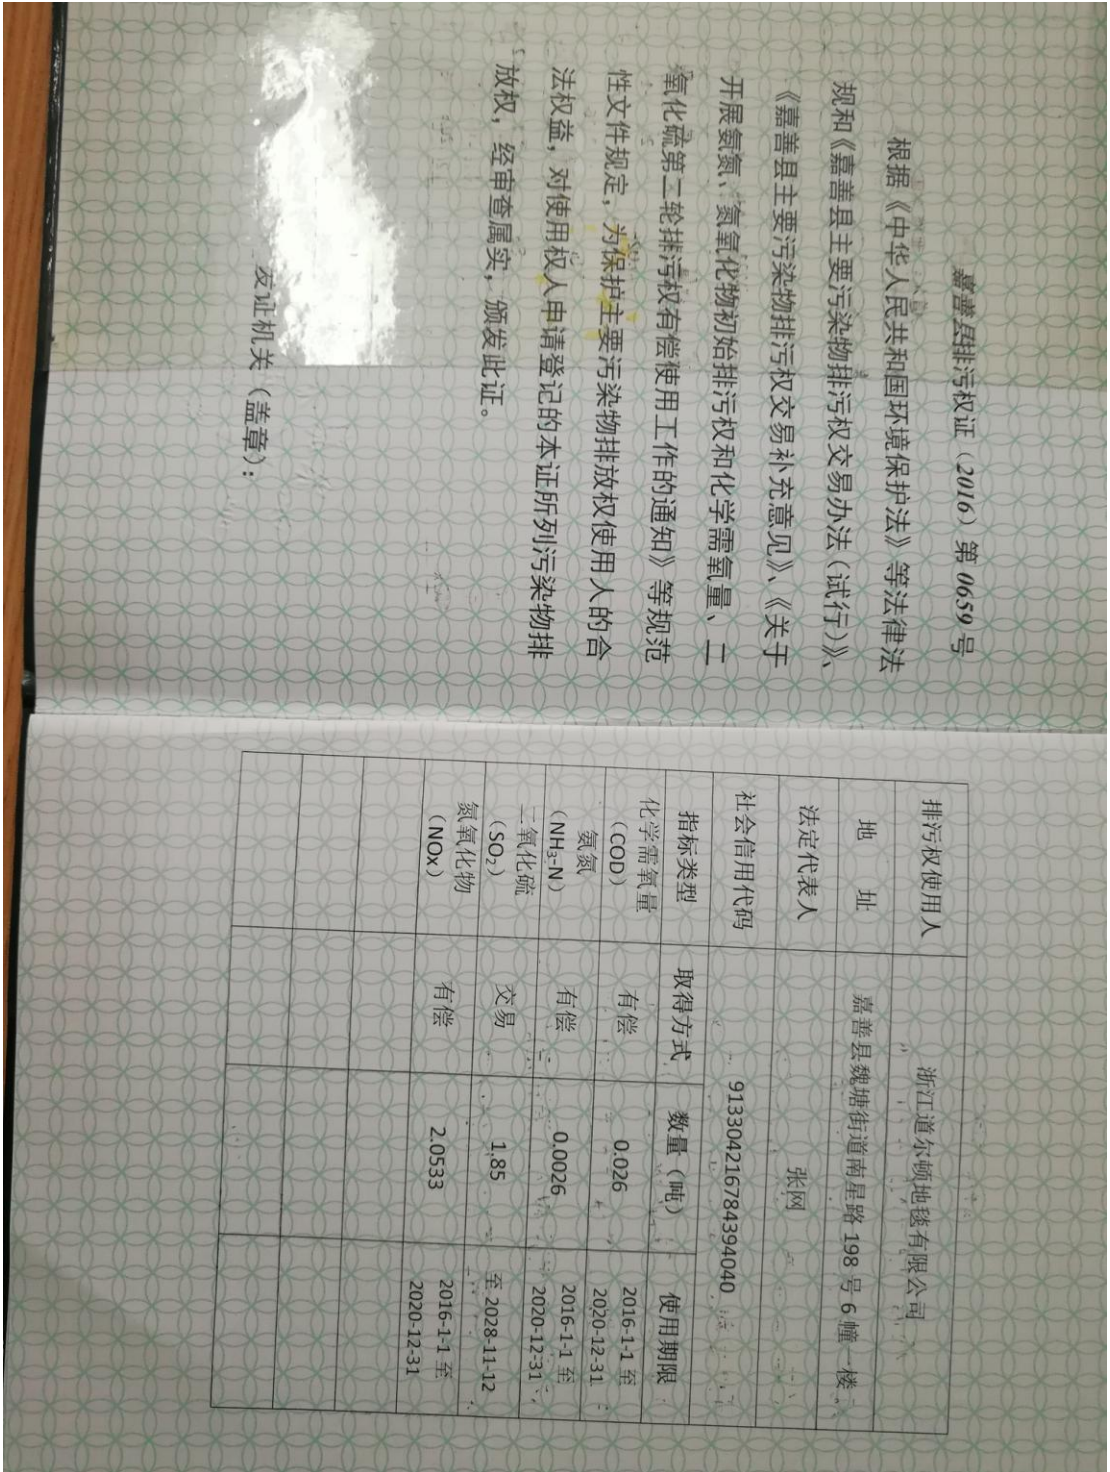 嘉善县排污权证（2016）第 0659 号
根据《中华人民共和国环境保护法》等法律法
规和《嘉善县主要污染物排污权交易办法（试行）》、
《嘉善县主要污染物排污权交易补充意见》、《关于
开展氨氮、氮氧化物初始排污权和化学需氧量、二
氧化硫第二轮排污权有偿使用工作的通知》等规范
性文件规定，为保护主要污染物排放权使用人的合
法权益，对使用权人申请登记的本证所列污染物排
放权，经审查属实，颁发此证。
发证机关（盖章）：
排污权使用人 浙江道尔顿地毯有限公司
地 址 嘉善县魏塘街道南星路 198 号 6 幢一楼
法定代表人 张网
社会信用代码 913304216784394040
指标类型 取得方式 数量（吨） 使用期限
化学需氧量
（COD） 有偿 0.026 2016-1-1 至
2020-12-31
氨氮
（NH₃-N） 有偿 0.0026 2016-1-1 至
2020-12-31
二氧化硫
（SO₂） 交易 1.85 至 2028-11-12
氮氧化物
（NOx） 有偿 2.0533 2016-1-1 至
2020-12-31